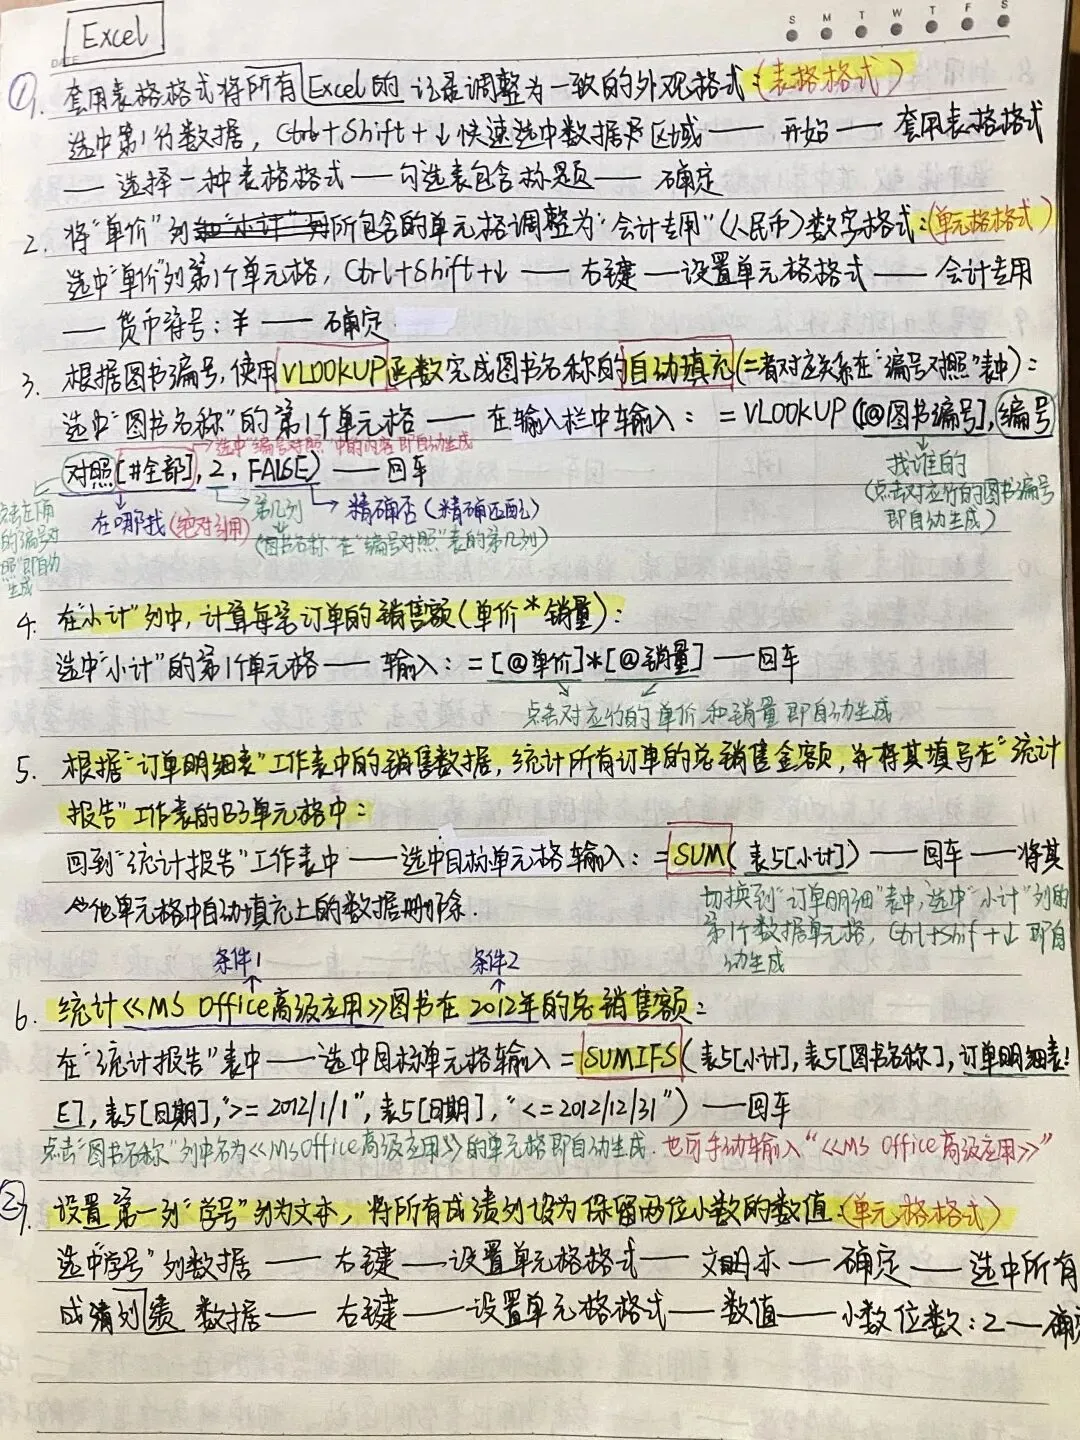 Excel
S M T W T F S
DATE
①1. 套用表格格式将所有Excel的记录调整为一致的外观格式:(表格格式)
选中第1行数据, Ctrl+Shift+↓快速选中数据区域 —— 开始 —— 套用表格格式
—— 选择一种表格格式 —— 勾选表包含标题 —— 确定
2. 将"单价"列所包含的单元格调整为"会计专用"(人民币)数字格式:(单元格格式)
选中"单价"列第1个单元格, Ctrl+Shift+↓ —— 右键 —— 设置单元格格式 —— 会计专用
—— 货币符号: ¥ —— 确定
3. 根据图书编号,使用VLOOKUP函数完成图书名称的自动填充(二者对应关系在"编号对照"表中):
选中"图书名称"的第1个单元格 —— 在输入栏中输入: =VLOOKUP([@图书编号],编号
选中"编号对照"中的内容即自动生成
对照[#全部], 2, FALSE) —— 回车
找谁的
(点击对应行的图书编号
即自动生成)
点击左角
的编号对
照"即自动
生成
在哪找(绝对引用) 第几列 精确否(精确匹配)
(图书名称"在"编号对照"表的第几列)
4. 在"小计"列中,计算每笔订单的销售额(单价*销量):
选中"小计"的第1个单元格 —— 输入: =[@单价]*[@销量] —— 回车
点击对应行的单价和销量即自动生成
5. 根据"订单明细表"工作表中的销售数据,统计所有订单的总销售金额,并将其填写在"统计
报告"工作表的B3单元格中:
回到"统计报告"工作表中 —— 选中目标单元格输入: =SUM(表5[小计]) —— 回车 —— 将其
他单元格中自动填充上的数据删除.
切换到"订单明细"表中,选中"小计"列的
第1个数据单元格, Ctrl+Shif+↓即自
动生成
条件1 条件2
6. 统计《MS Office高级应用》图书在2012年的总销售额:
在"统计报告"表中 —— 选中目标单元格输入=SUMIFS(表5[小计],表5[图书名称],订单明细表!
E],表5[日期],">=2012/1/1",表5[日期],"<=2012/12/31") —— 回车
点击"图书名称"列中名为《MS Office高级应用》的单元格即自动生成.也可手动输入"《MS Office高级应用》"
②1. 设置第一列"学号"列为文本,将所有成绩列设为保留两位小数的数值:(单元格格式)
选中"学号"列数据 —— 右键 —— 设置单元格格式 —— 文本 —— 确定 —— 选中所有
成绩列数据 —— 右键 —— 设置单元格格式 —— 数值 —— 小数位数:2 —— 确定